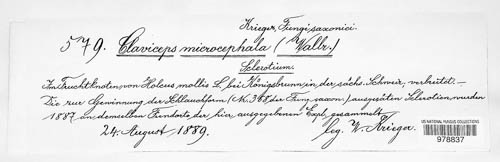 Krieger, Fungi saxonici.
579. Claviceps microcephala (Wallr.)
Sclerotium.
Im Fruchtknoten von Holcus mollis L. bei Königsbrunn in der sächs. Schweiz, verbreitet. —
Die zur Gewinnung der Schlauchform (N. 368 der Fung. saxon.) ausgesäten Sclerotien wurden
1887 an demselben Fundorte der hier ausgegebenen Expl. gesammelt.
24. August 1889. leg. W. Krieger.
US NATIONAL FUNGUS COLLECTIONS
978837